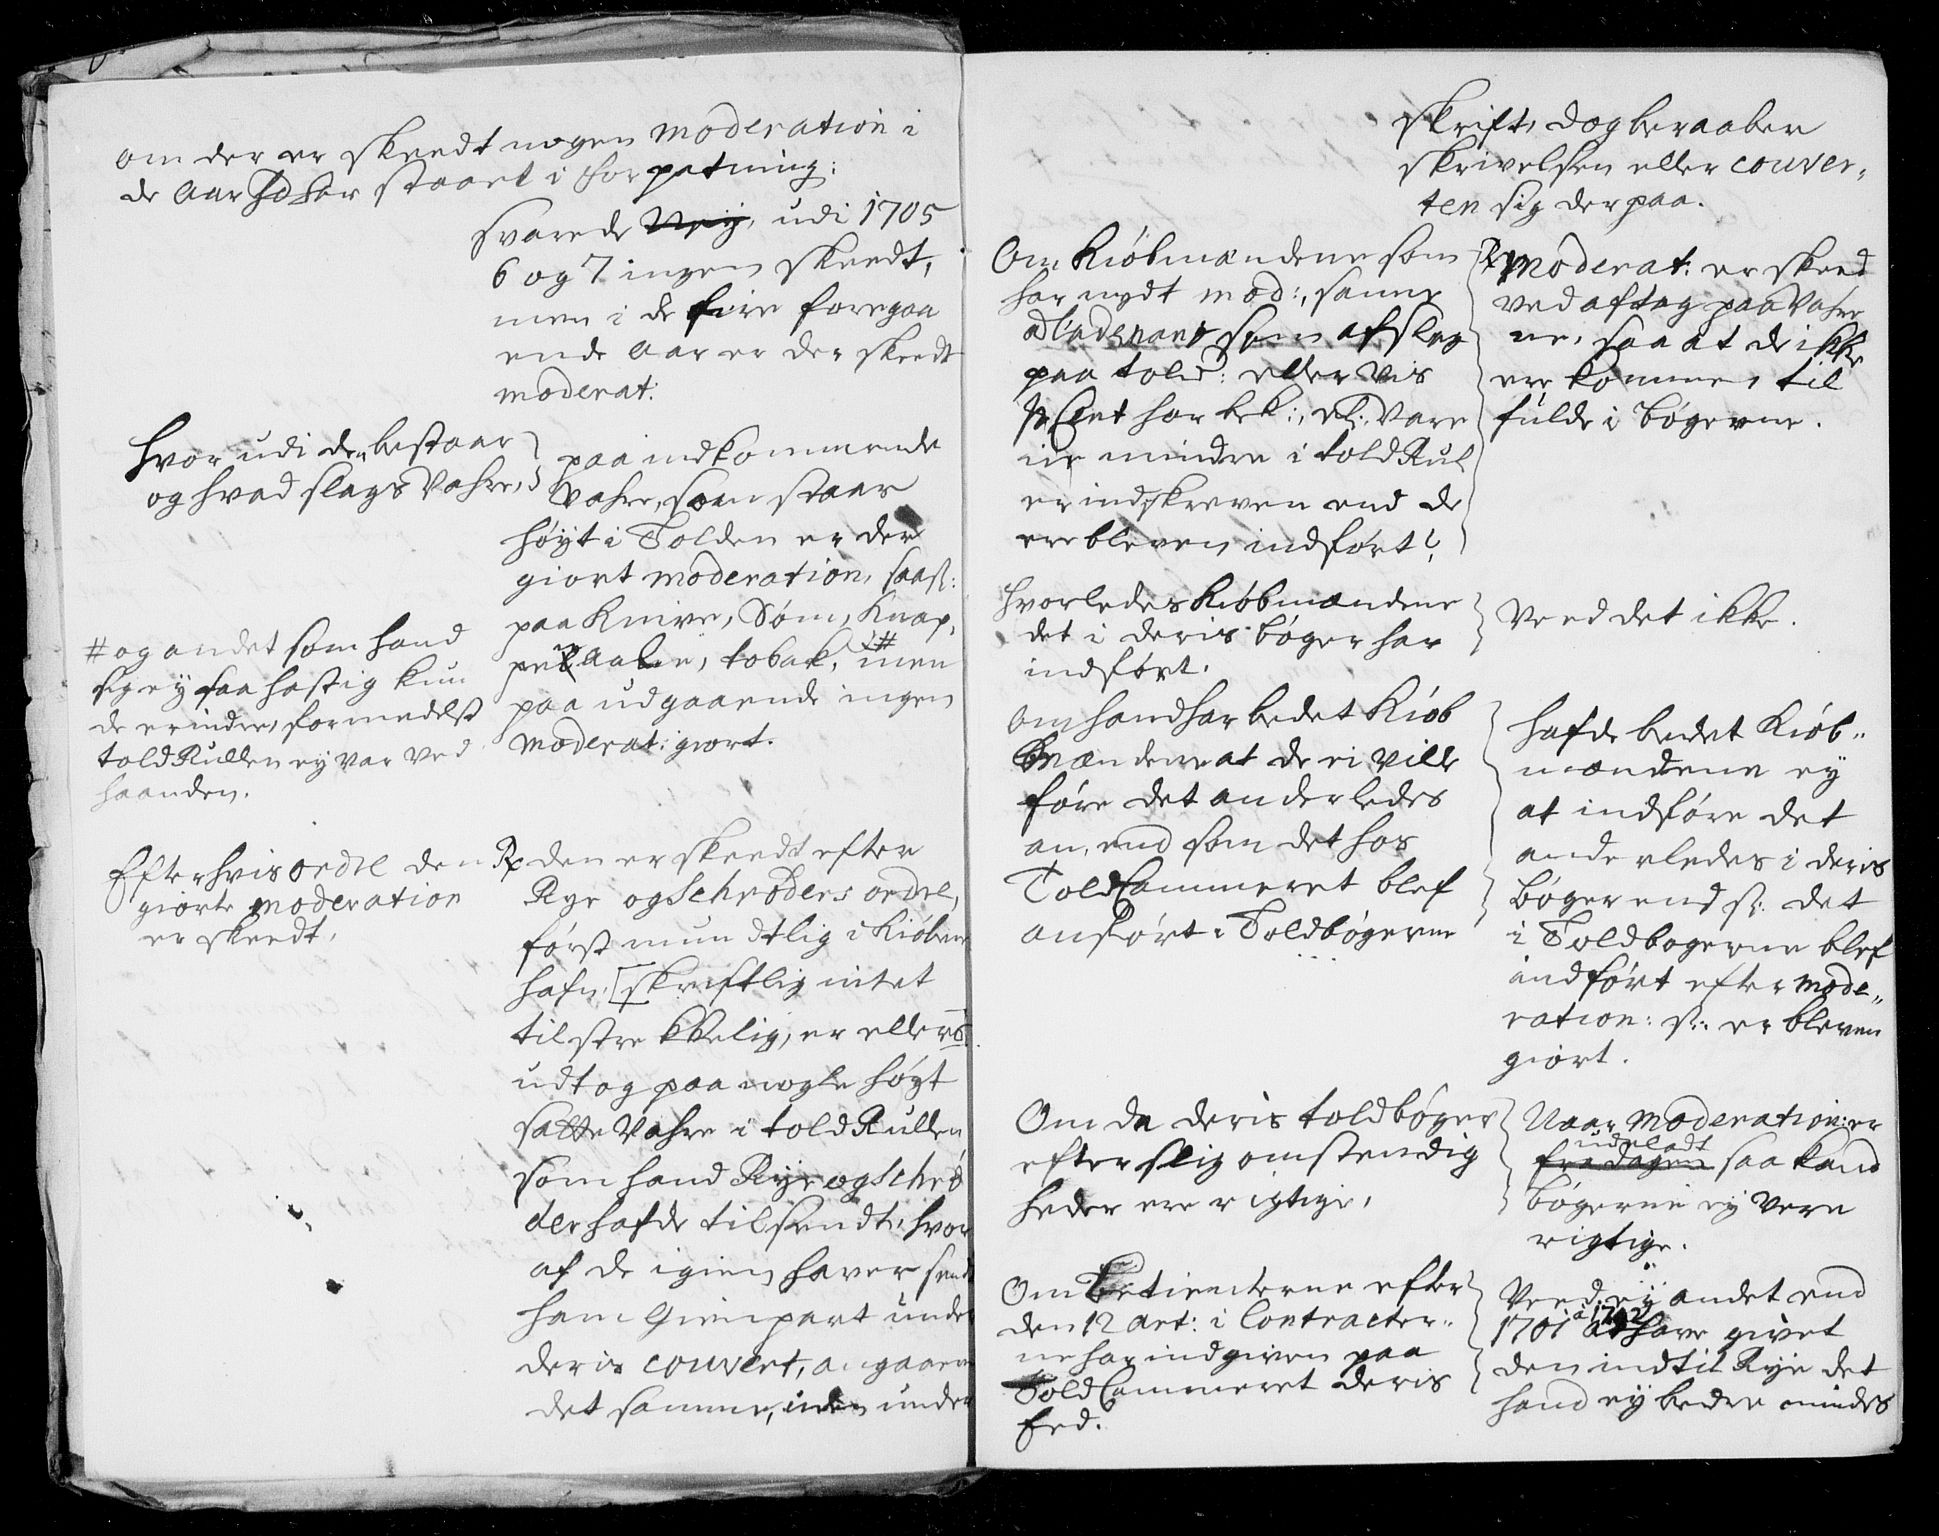 om der er skeedt nogen moderation i
de aar Hd har staaet i forpatning:
svarede Ney, udi 1705
6 og 7 ingen skeedt,
men i de fire foregaa
ende aar er der skeedt
moderat:
hvor udi den bestaar
og hvad slags Vahre,
paa indkommende
Vahre, som staar
høyt i Tolden er der
giort moderation, saas:
paa Knive, Søm, Knap,
penaale, tobak, # men
paa udgaaende ingen
moderat: giort.
# og andet som hand
sig ey saa hastig kun
de erindre, formedelst
toldRullen ey var ved
haanden.
Efter hvis ordre den
giorte moderation
er skeedt,
Rx den er skeedt efter
Rye og Schrøders ordre,
først mundtlig i Kiøben
hafn, [skriftlig intet
tilstrekkelig, er ellers
udtog paa nogle høyt
satte Vahre i toldRullen
som hand Rye og Schrø
der hafde tilsendt, hvor
af de igien haver sendt
ham Gienpart under
deris couvert, angaaen
det samme, uden under
skrift, dog beraaber
skrivelsen eller couver,,
ten sig der paa.
Om Kiøbmændene som
har nydt mod:, samme
som afslag
paa told: eller vis
pCent har bek:, el: Vare
ne mindre i toldRul
er indskreven end de
ere bleven indført?
Rx Moderat: er skeed
ved aftag paa Vahre
ne, saa at de ikke
ere kommen til
fulde i bøgerne.
hvorledes Kiøbmændene
det i deris bøger har
indført.
Veed det ikke.
om hand har bedet Kiøb
mændene at de ei ville
føre det anderledes
an, end som det hos
ToldCammeret blef
anført i Toldbøgerne
hafde bedet Kiøb,,
mændene ey
at indføre det
anderledes i deris
bøger end s: det
i Toldbogerne blef
indført efter mode,,
ration: s: er bleven
giort.
Om da deris toldbøger
efter slig omstendig
heder ere rigtige,
Naar moderation: er
udeladt
fradagen saa kand
bøgerne ey vere
rigtige.
Om Betienterne efter
den 12 art: i Contracter,,
ne har indgiven paa
ToldCammeret deris
Eed.
Veed ey andet end
a 1702
1701 at have givet
den indtil Rye det
hand ey bedre mindes